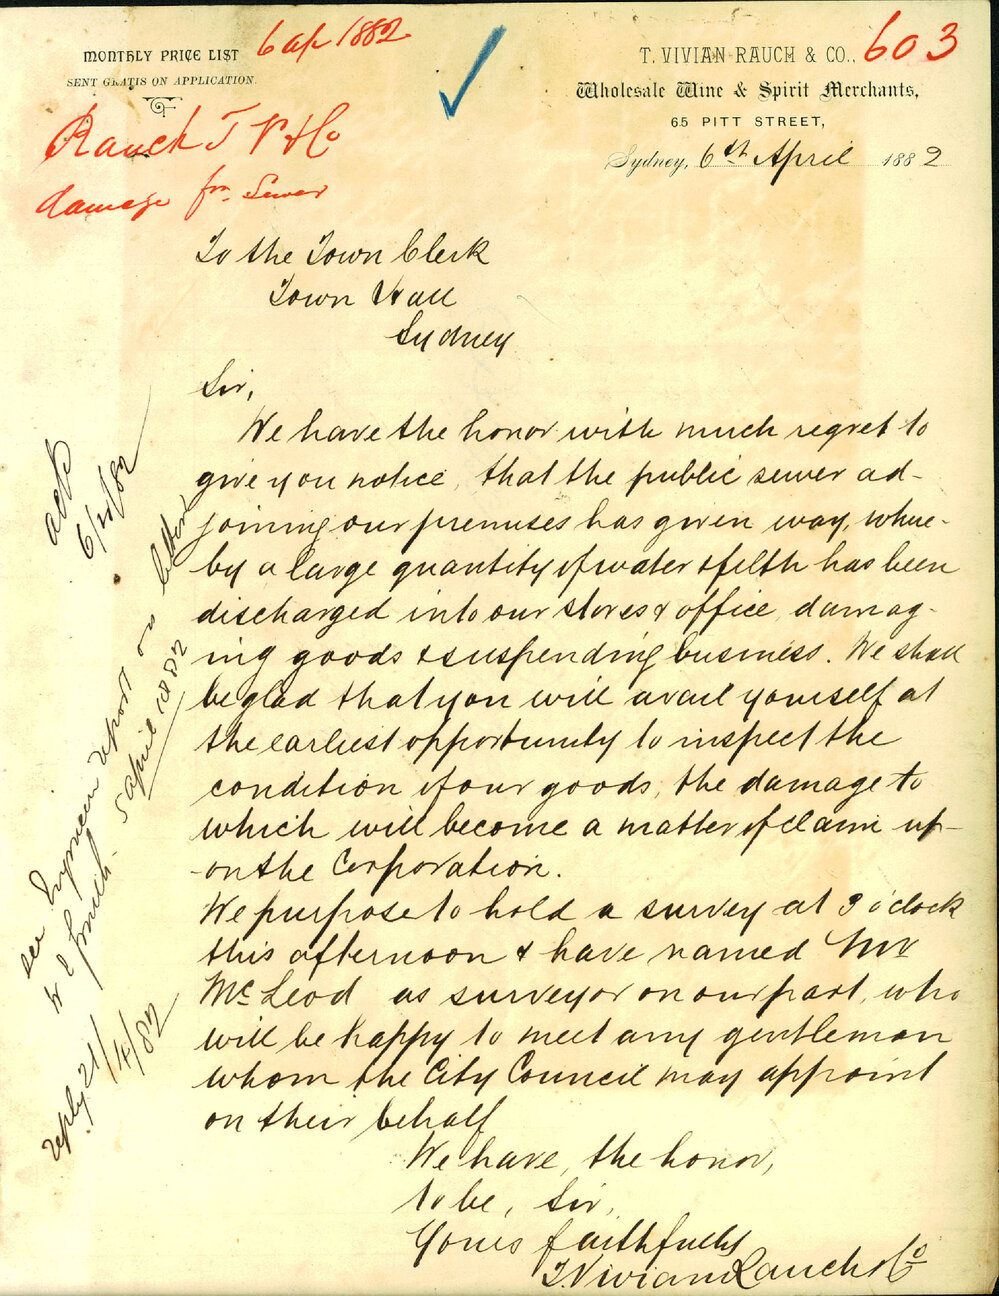 MONTHLY PRICE LIST
SENT GRATIS ON APPLICATION.
6 Ap 1882
603
T. VIVIAN RAUCH & CO.,
Wholesale Wine & Spirit Merchants,
65 PITT STREET,
Sydney, 6th April 1882
Rauch T V & Co
damage fm Sewer
To the Town Clerk
Town Hall
Sydney
Sir,
We have the honor with much regret to
give you notice, that the public sewer ad-
joining our premises has given way, where-
by a large quantity of water & filth has been
discharged into our stores & office, damag-
ing goods & suspending business. We shall
be glad that you will avail yourself at
the earliest opportunity to inspect the
condition of our goods, the damage to
which will become a matter of claim up-
-on the Corporation.
We purpose to hold a survey at 3 o'clock
this afternoon & have named Mr
McLeod as surveyor on our part, who
will be happy to meet any gentleman
whom the City Council may appoint
on their behalf
We have, the honor,
to be, Sir,
Yours faithfully
T. Vivian Rauch & Co
6/4/82
see report on letter
5 April 1882
reply 21/4/82